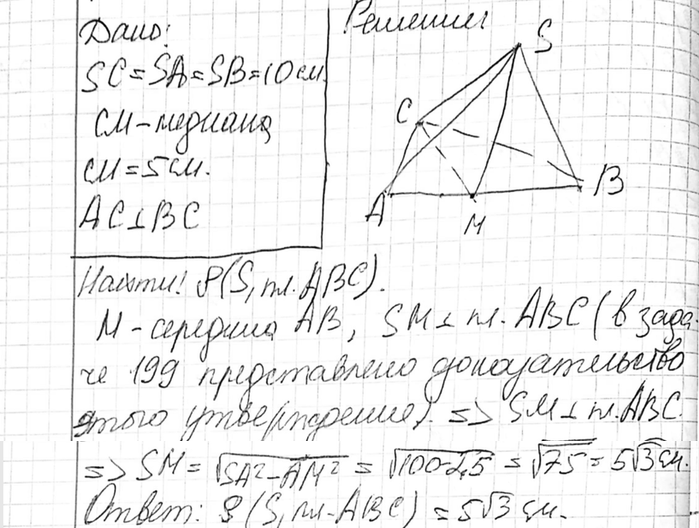 Дано:
Решение:
SC=SA=SB=10см.
CM-медиана
CM=5см.
AC⊥BC
S
C
A
M
B
Найти: ρ(S, пл. ABC).
M-середина AB, SM⊥пл. ABC (в зада-
че 199 представлено доказательство
этого утверждения). => SM⊥пл. ABC.
=> SM = √SA²-AM² = √100-25 = √75 = 5√3 см.
Ответ: ρ(S, пл. ABC) = 5√3 см.